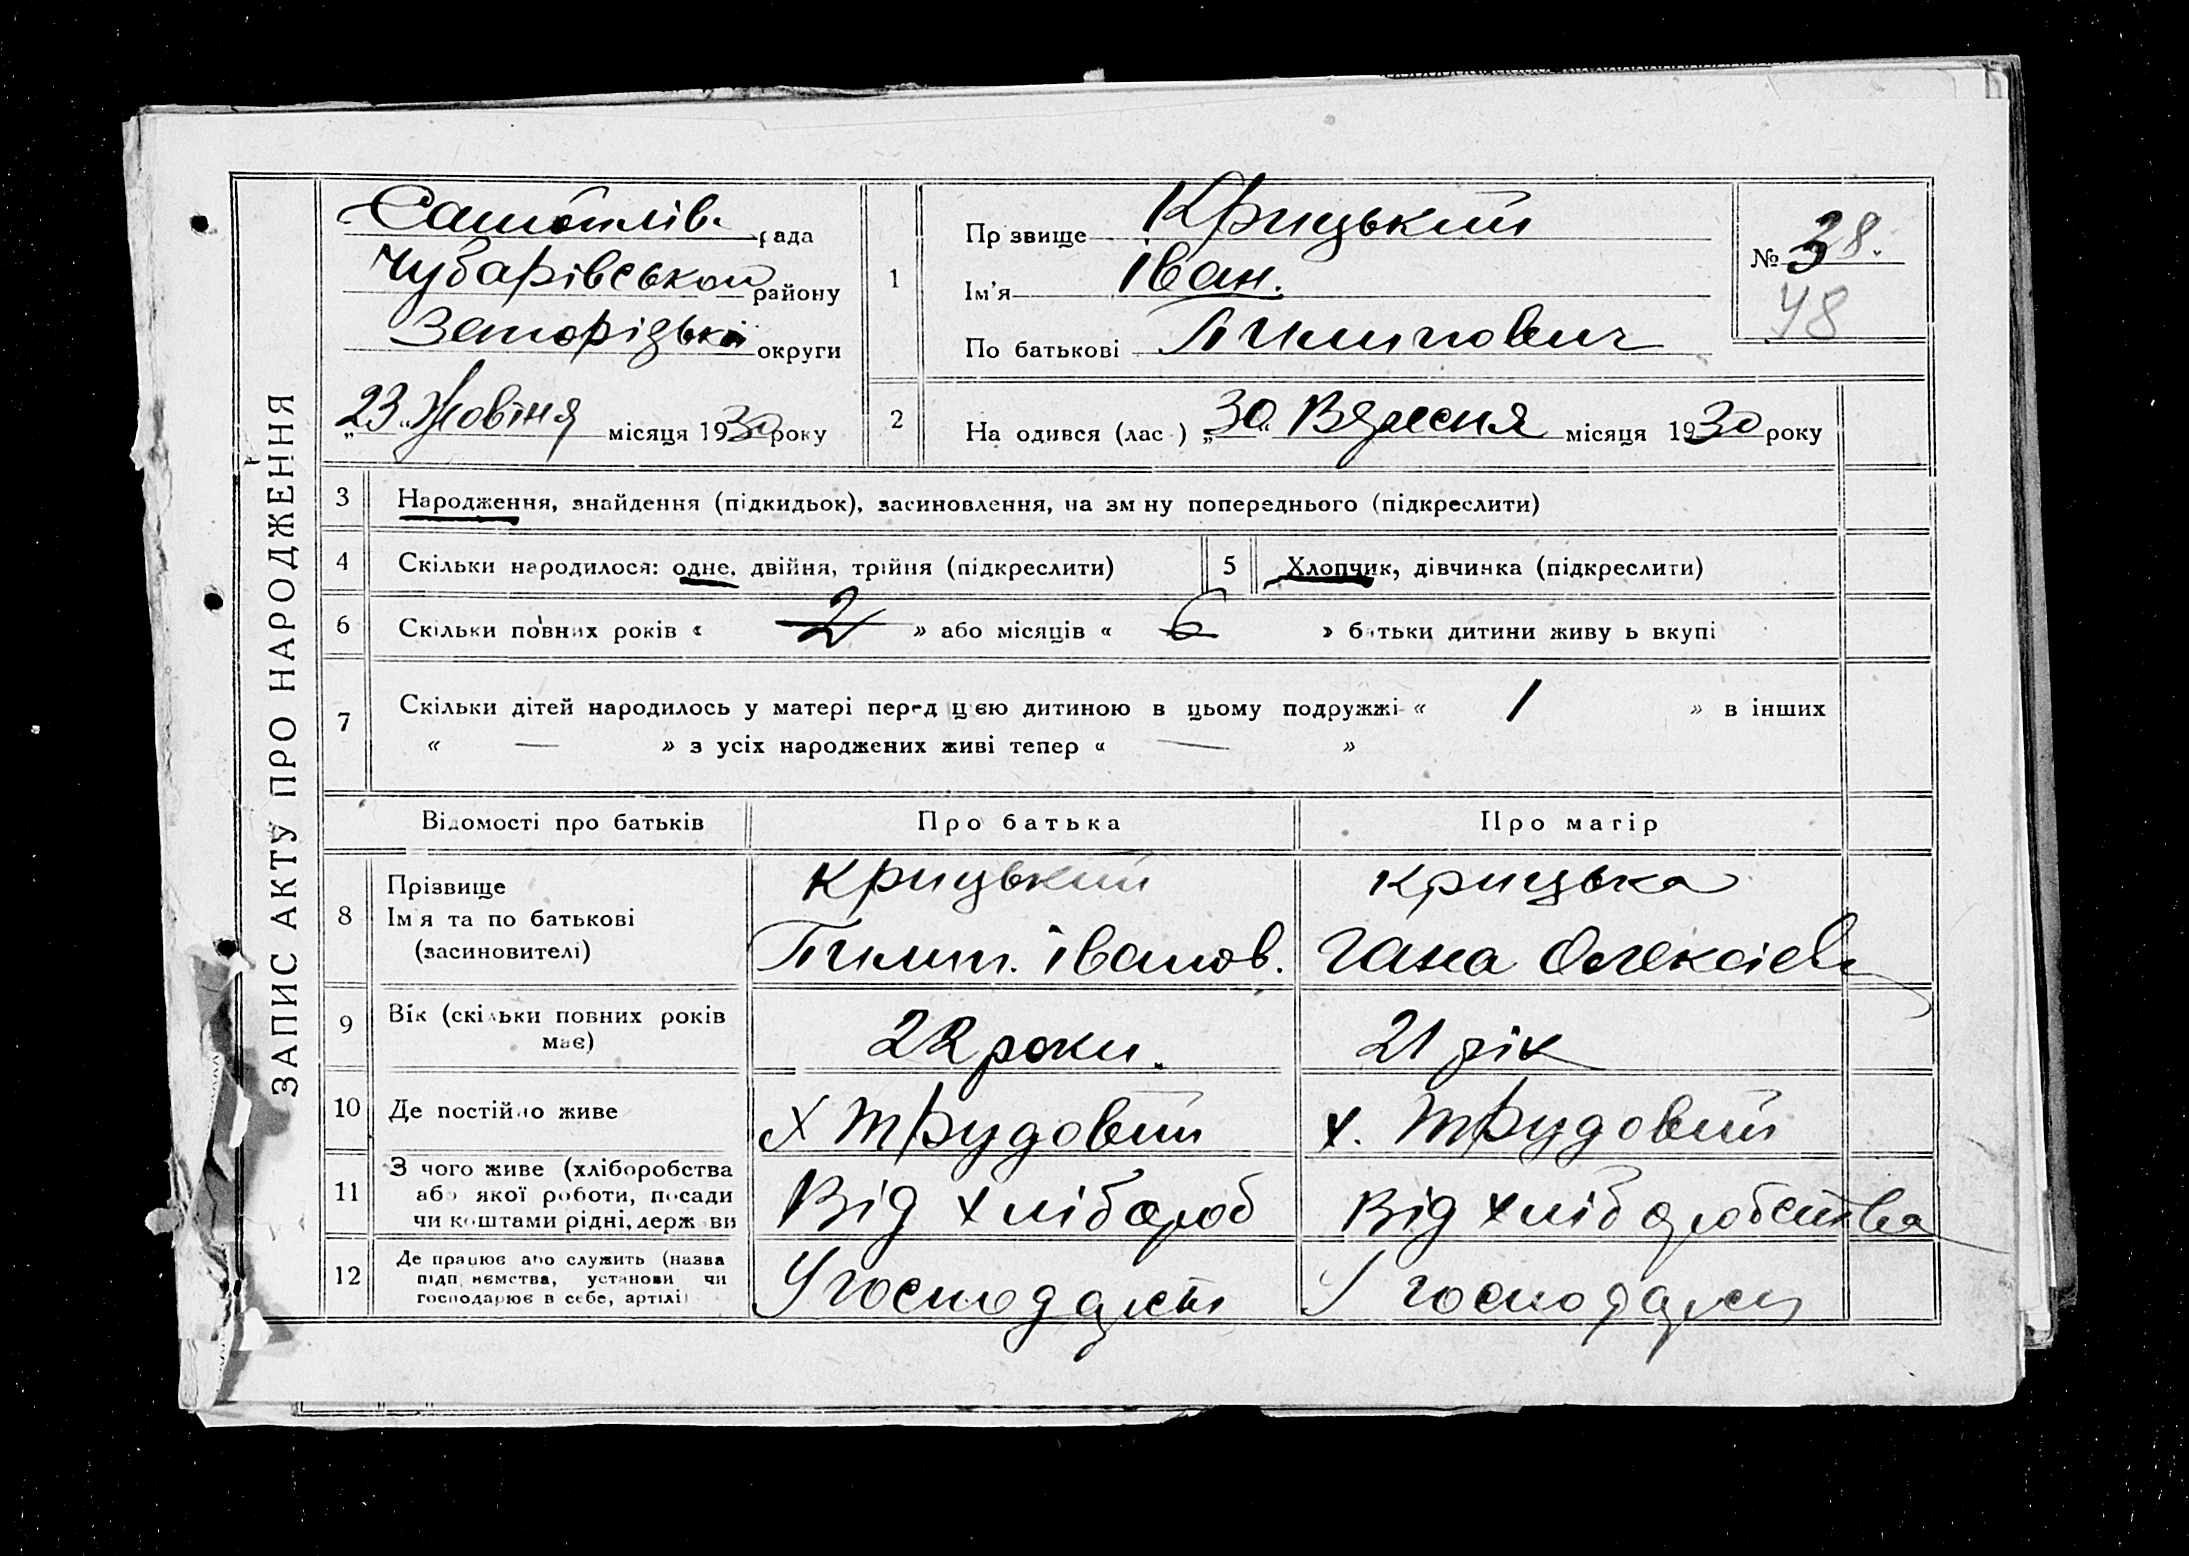 ЗАПИС АКТУ ПРО НАРОДЖЕННЯ
рада
Чубарівської району
Запорізької округи
„23“ Жовтня місяця 1930 року
1
Прізвище Крицький
Ім'я Іван.
По батькові Пилипович
№ 38.
48
2
На одився (лас ) „30“ Вересня місяця 1930 року
3 Народження, знайдення (підкидьок), засиновлення, на зм ну попереднього (підкреслити)
4 Скільки народилося: одне, двійня, трійня (підкреслити)
5 Хлопчик, дівчинка (підкреслити)
6 Скільки повних років « 2 » або місяців « 6 » батьки дитини живу ь вкупі
7 Скільки дітей народилось у матері перед цією дитиною в цьому подружжі « 1 » в інших
« — » з усіх народжених живі тепер « — »
Відомості про батьків Про батька Про матір
8 Прізвище
Ім'я та по батькові
(засиновителі)
Крицький
Пилип. Іванов.
Крицька
Гана Олексієв
9 Вік (скільки повних років
має)
22 роки.
21 рік
10 Де постійно живе
х Трудовий
х. Трудовий
11 З чого живе (хліборобства
або якої роботи, посади
чи коштами рідні, держ ви
Від хлібороб
Від хліборобства
12 Де працює або служить (назва
підп иємства, установи чи
господарює в себе, артілі)
У господарст
У господарст